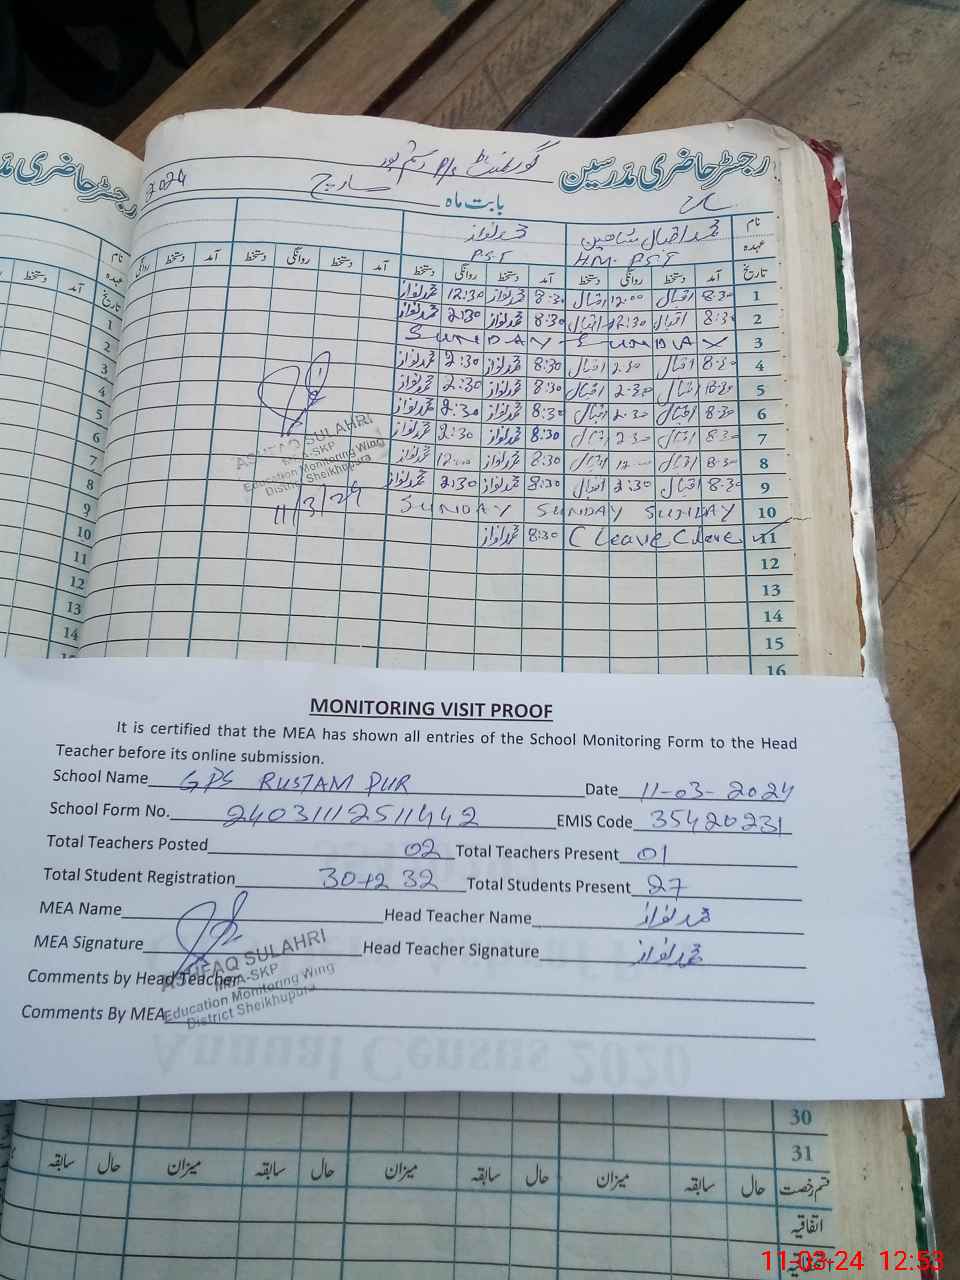 رجسٹر حاضری مدرسین گورنمنٹ P/S رستم پور
بابت ماہ مارچ 2024
نام محمد اقبال شاہین محمد نواز
عہدہ HM. PST P.S.T
تاریخ آمد دستخط روانگی دستخط آمد دستخط روانگی دستخط آمد دستخط روانگی دستخط آمد دستخط روانگی
1 8:30 اقبال 12:00 اقبال 8:30 محمد نواز 12:30 محمد نواز
2 8:30 اقبال 12:30 اقبال 8:30 محمد نواز 2:30 محمد نواز
3 SUNDAY SUNDAY
4 8:30 اقبال 2:30 اقبال 8:30 محمد نواز 2:30 محمد نواز
5 8:30 اقبال 2:30 اقبال 8:30 محمد نواز 2:30 محمد نواز
6 8:30 اقبال 2:30 اقبال 8:30 محمد نواز 2:30 محمد نواز
7 8:30 اقبال 2:30 اقبال 8:30 محمد نواز 2:30 محمد نواز
8 8:30 اقبال 12:00 اقبال 8:30 محمد نواز 12:00 محمد نواز
9 8:30 اقبال 2:30 اقبال 8:30 محمد نواز 2:30 محمد نواز
10 SUNDAY SUNDAY SUNDAY
11 C Leave C Leave 8:30 محمد نواز
12
13
14
15
16
ASHFAQ SULAHRI
MEA-SKP
Education Monitoring Wing
District Sheikhupura
11/3/24
رجسٹر حاضری
نام
عہدہ
تاریخ آمد دستخط
1
2
3
4
5
6
7
8
9
10
11
12
13
14
MONITORING VISIT PROOF
It is certified that the MEA has shown all entries of the School Monitoring Form to the Head
Teacher before its online submission.
School Name GPS RUSTAM PUR Date 11-03-2024
School Form No. 24031112511442 EMIS Code 35420231
Total Teachers Posted 02 Total Teachers Present 01
Total Student Registration 30+2 32 Total Students Present 27
MEA Name Head Teacher Name محمد نواز
MEA Signature Head Teacher Signature محمد نواز
Comments by Head Teacher
Comments By MEA
ASHFAQ SULAHRI
MEA-SKP
Education Monitoring Wing
District Sheikhupura
Annual Census 2020
30
31
قسم رخصت حال سابقہ میزان حال سابقہ میزان حال سابقہ میزان حال سابقہ
اتفاقیہ
11-03-24 12:53